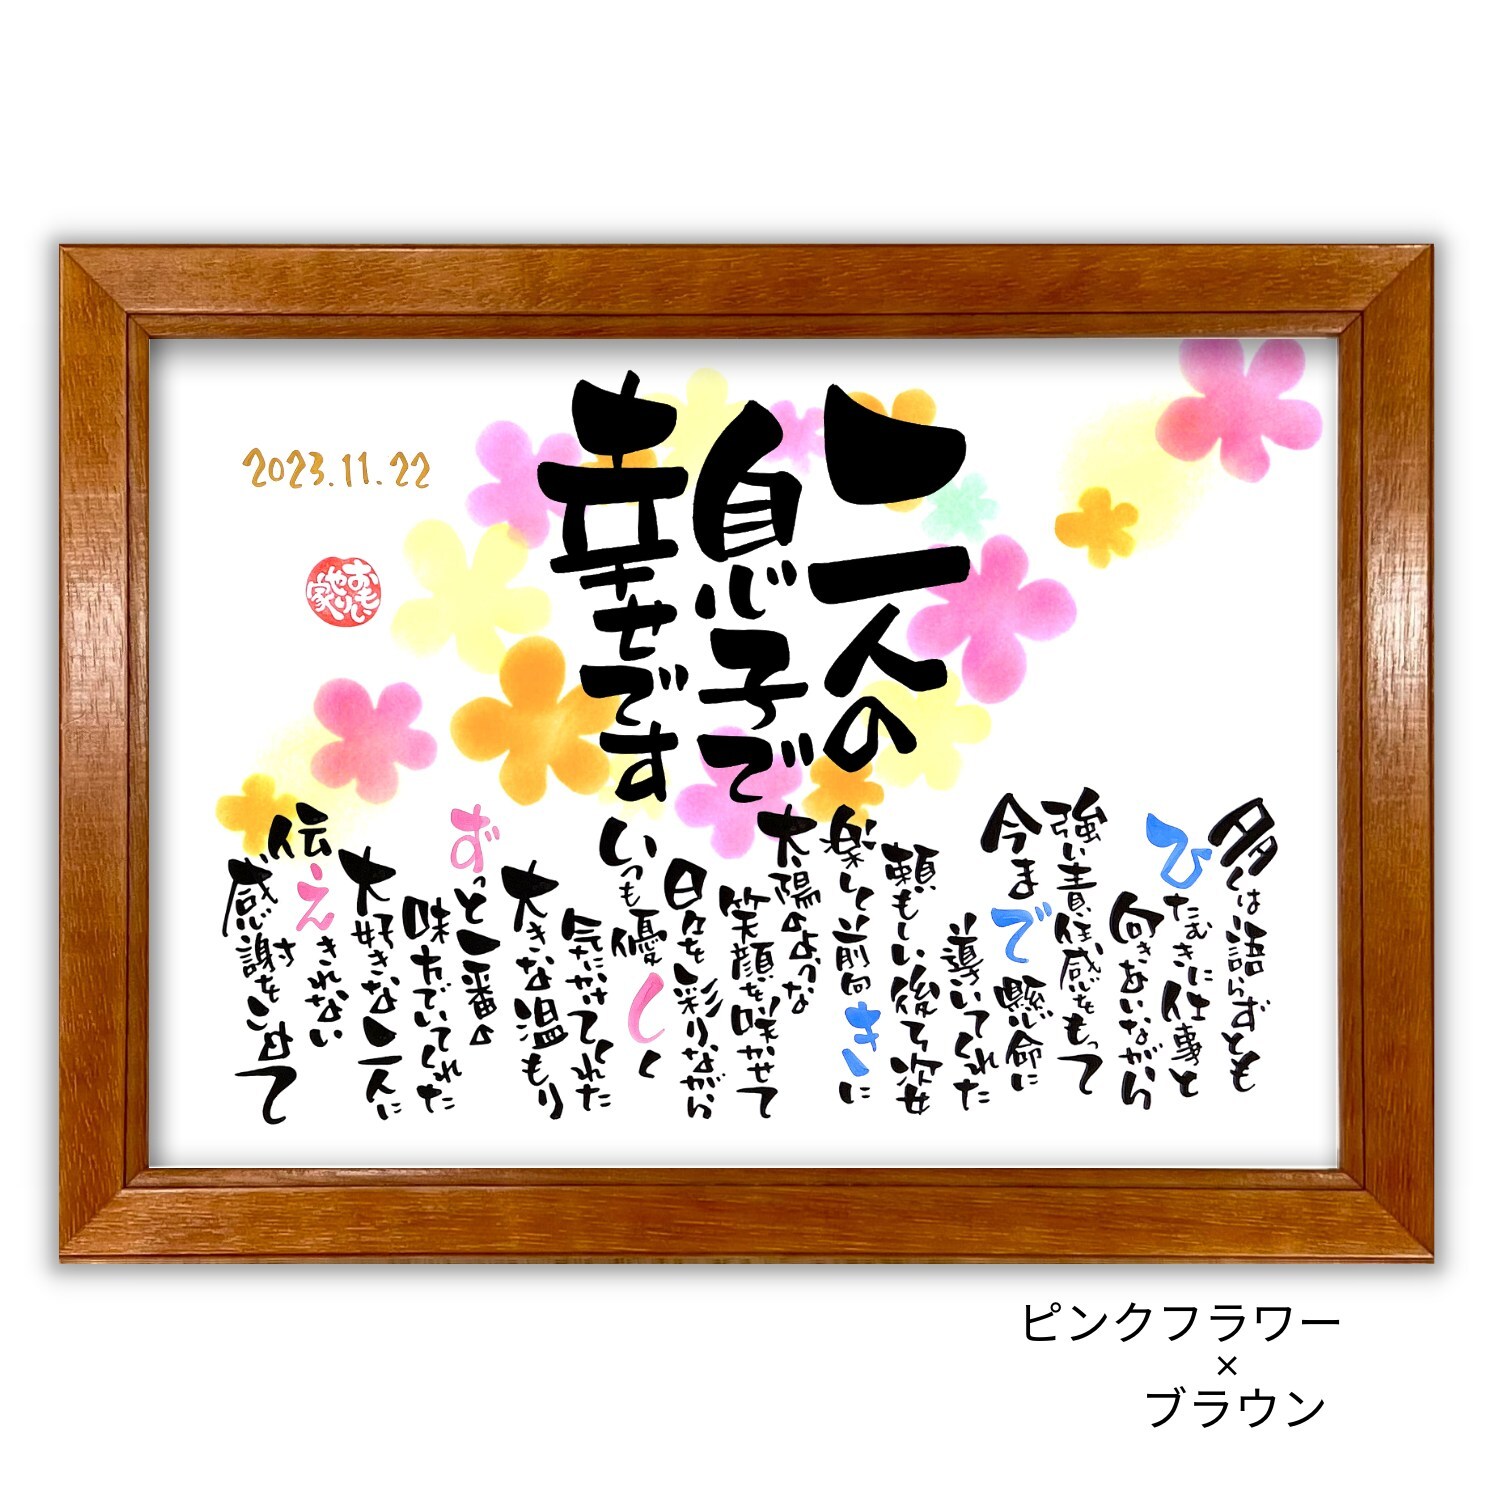 二人の
息子で
幸せです
2023.11.22
おもい
やり
家
多くは語らずとも
ひたむきに仕事と
向きあいながら
強い責任感をもって
今まで懸命に
導いてくれた
頼もしい後ろ姿
楽しく前向きに
太陽のような
笑顔を咲かせて
日々を彩りながら
いつも優しく
気にかけてくれた
大きな温もり
ずっと一番の
味方でいてくれた
大好きな二人に
伝えきれない
感謝をこめて
ピンクフラワー
×
ブラウン